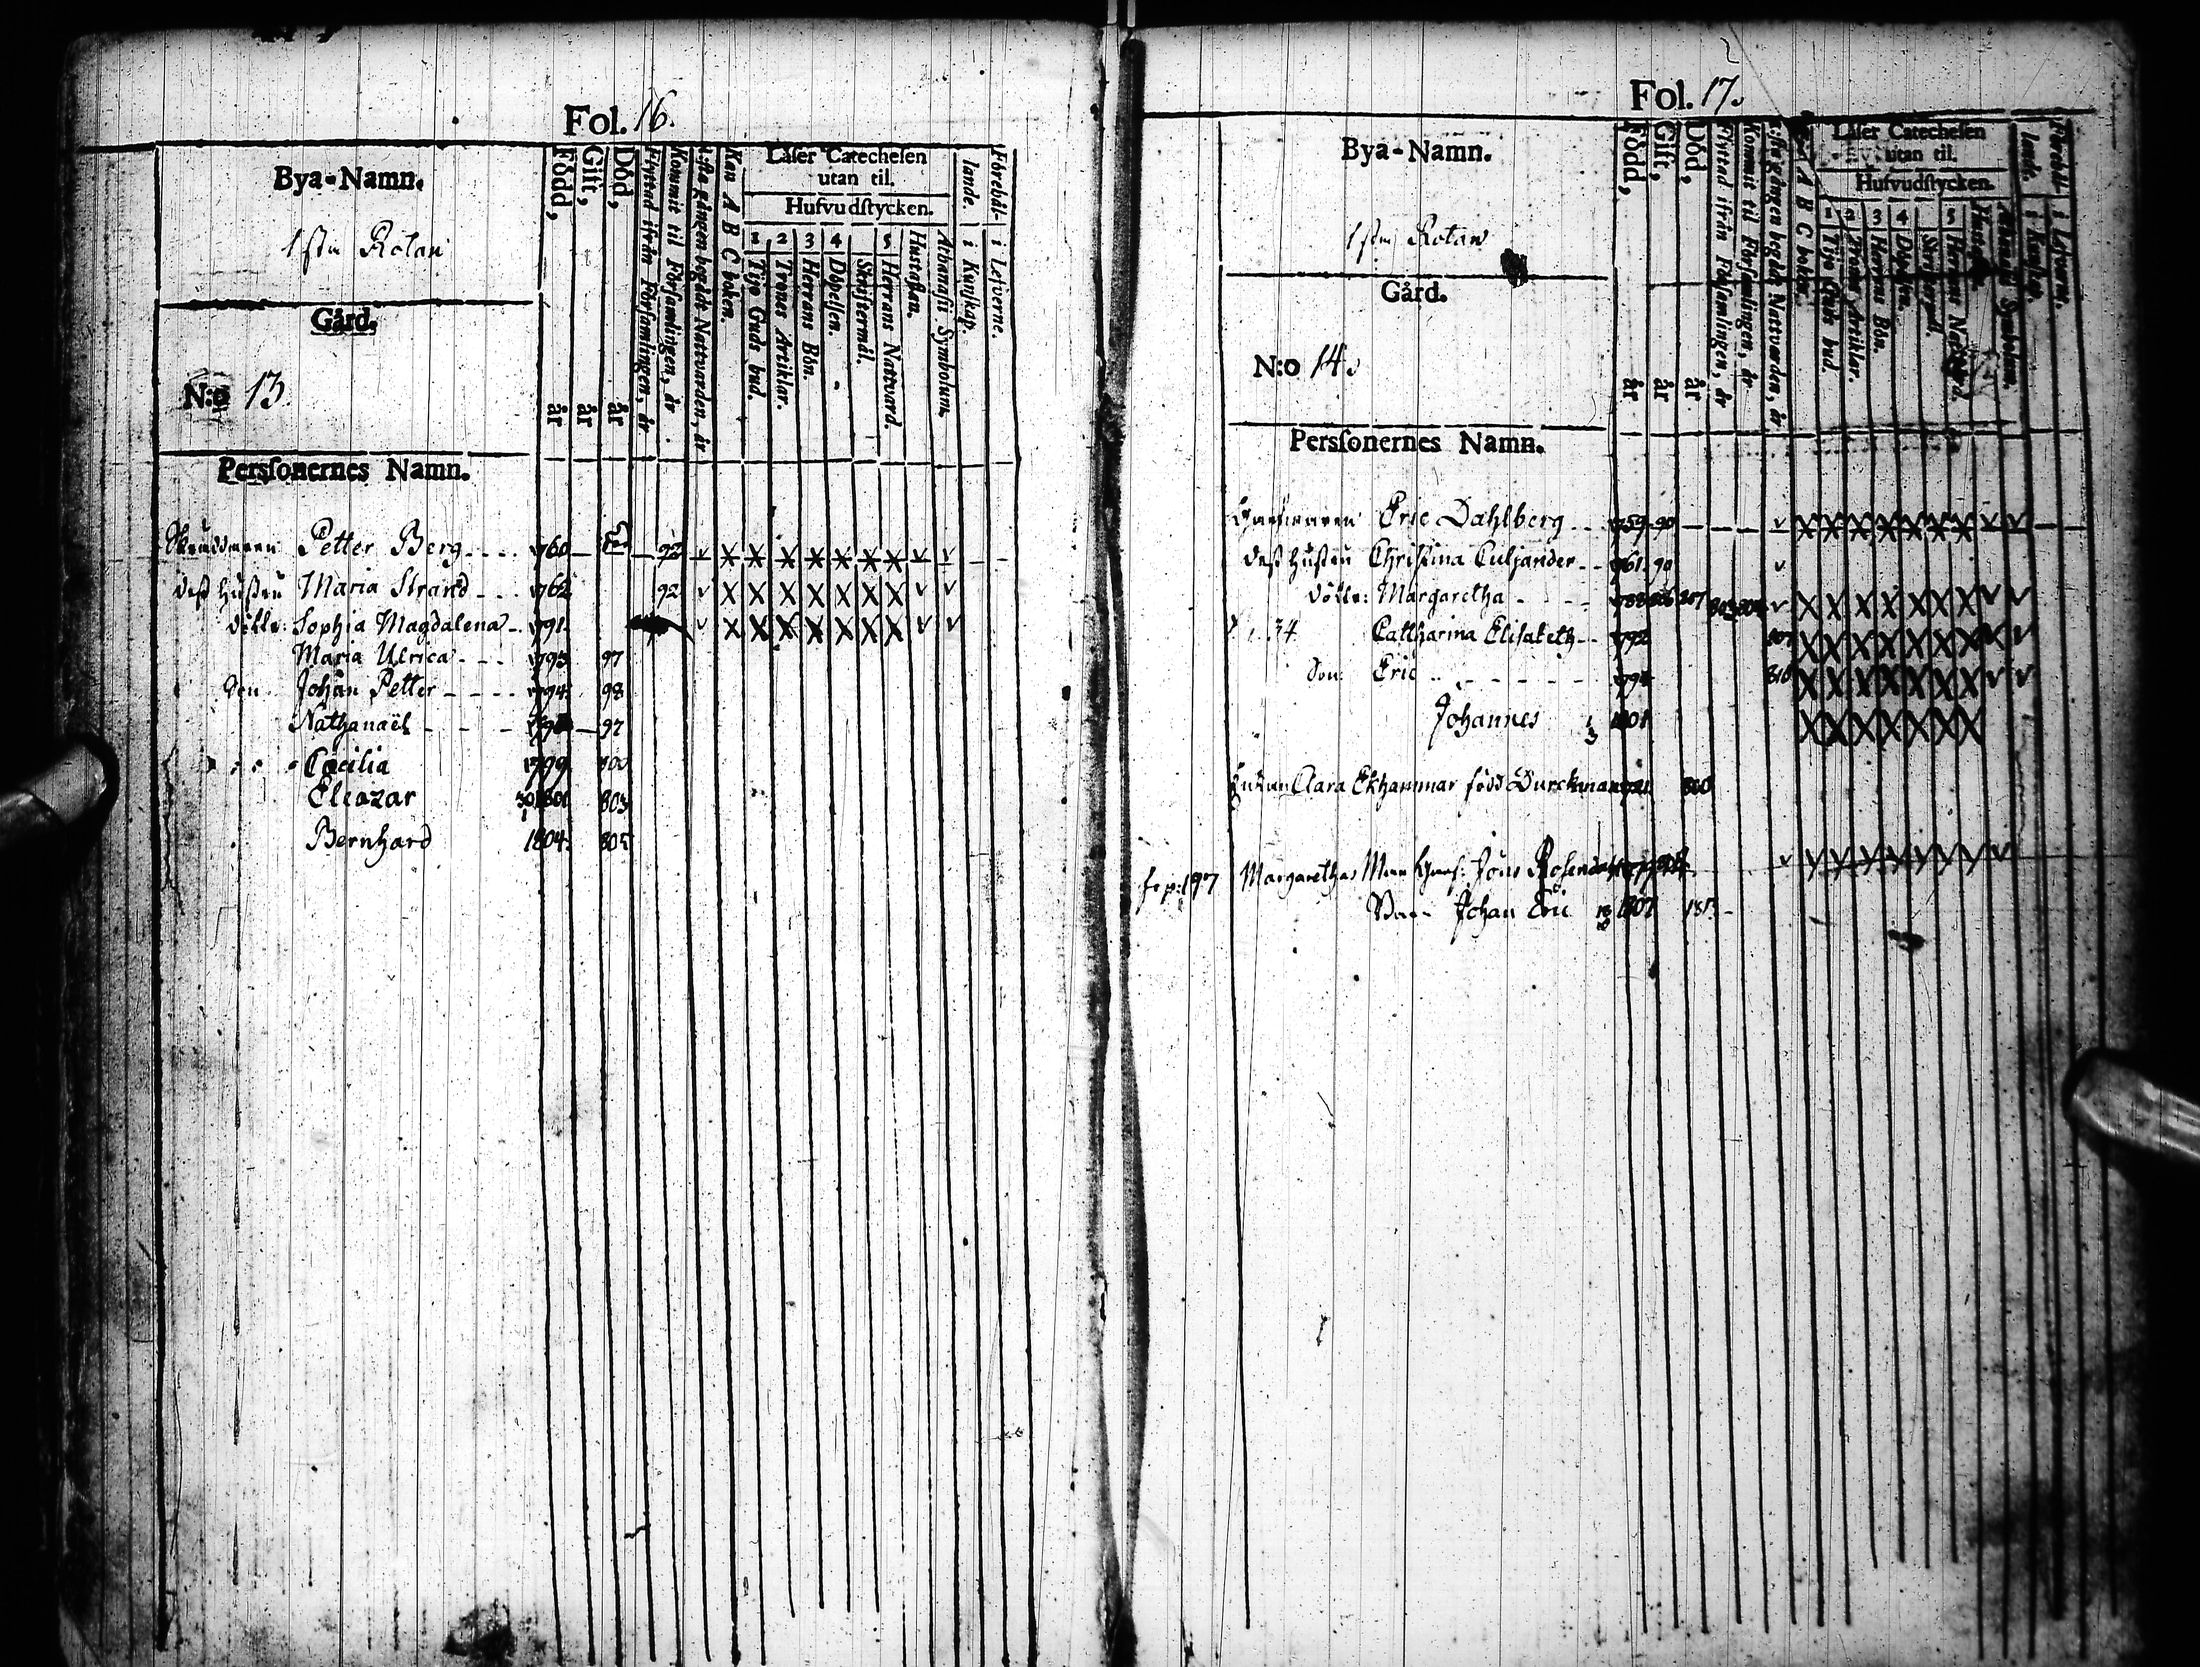 Fol. 16.
Bya-Namn.
1stn Rotan
Gård.
N:o 13
Persſonernes Namn.
Född, år
Gift, år
Död, år
Flyttad ifrån Församlingen, år
Kommit til Församlingen, år
1:sta gången begådt Nattvarden, år
Kan A B C boken.
Låser Catechesen
utan til.
Hufvudstycken.
1 Tijo Guds bud.
2 Trones Artiklar.
3 Herrans Bön.
4 Döpelsen.
Skriftermål.
5 Herrans Nattvard.
Hustaflan.
Athanasii Symbolum.
Förehål-
lande.
i Kunskap.
i Lefverne.
Petter Berg 1760 92 v X X X X X X X v v
dess hustru Maria Strand 1762 92 v X X X X X X X v v
Sophia Magdalena 1791 v X X X X X X X v v
Maria Ulrica 1793 97
Son Johan Petter 1794 98
Nathanaël 97
Cæcilia 1799 800
Eleazar 803
Bernhard 1804. 805
Fol. 17.
Bya-Namn.
1stn Rotan
Gård.
N:o 14.
Persſonernes Namn.
Född, år
Gift, år
Död, år.
Flyttad ifrån Församlingen, år
Kommit til Församlingen, år
1:sta gången begådt Nattvarden, år
A B C boken.
Låser Catechesen
utan til.
Hufvudstycken.
1 Tijo Guds bud.
2 Trones Artiklar.
3 Herrans Bön.
4 Döpelsen.
Skriftermål.
5 Herrans Nattvard.
Athanasii Symbolum.
Förehål-
lande.
i Kunskap.
i Lefverne.
Eric Dahlberg 1759 90 v X X X X X X X v v
dess hustru Christina Culjander 1761 90 v
Margaretha 1788 806 807 v X X X X X X X v v
34 Catharina Elisabeth 1792 X X X X X X X X v
Son Eric 1794 810 X X X X X X X v v
Johannes 1801 X X X X X X X
Clara Ekhammar född Durckman 800
se p: 197 Margarethas Man Jöns v v v v v v v v v
Johan Eric 1807 181